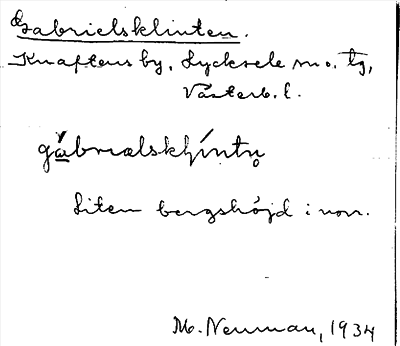 Gabrielsklinten.
Knaftens by, Lycksele sn o. tg,
Västerb. l.
gábriælskḷíntn̥
Liten bergshöjd i norr.
M. Neuman, 1934